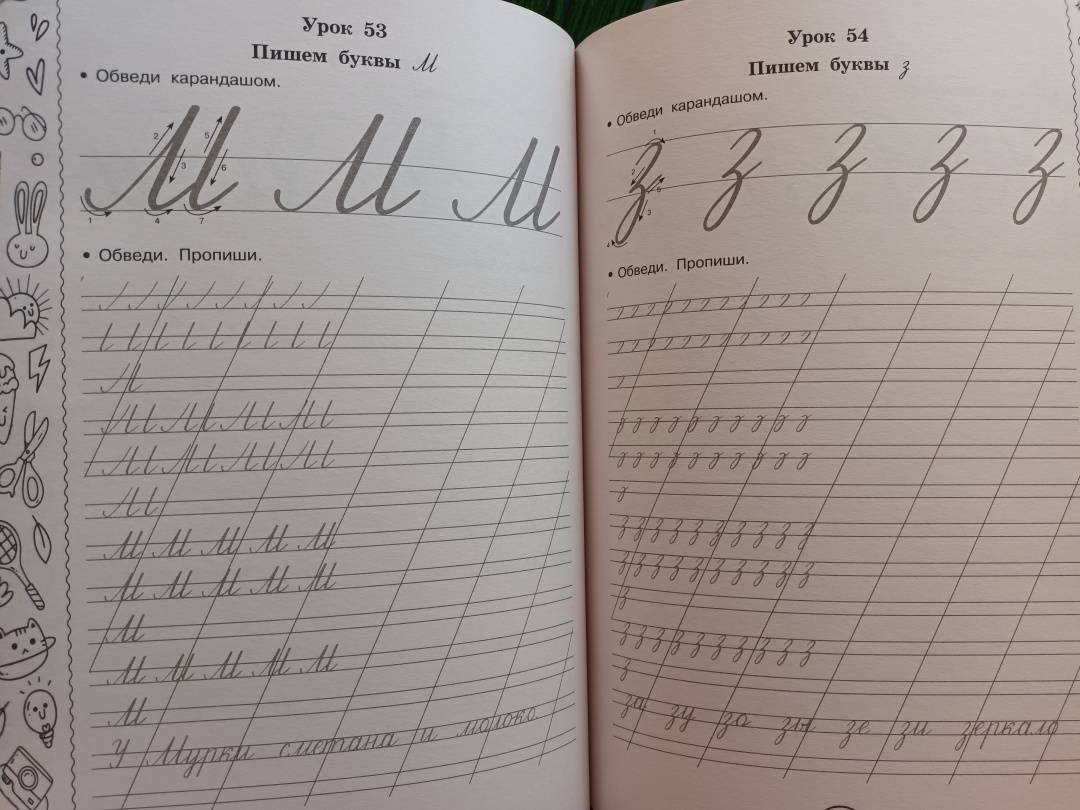 Урок 53
Пишем буквы М
• Обведи карандашом.
2 5
3 6
1 4 7
М М М
• Обведи. Пропиши.
М
М М М М
М М М М
М
М М М М М
М М М М М
М
М М М М М
М
У Мурки сметана и молоко.
Урок 54
Пишем буквы з
• Обведи карандашом.
1
2 5
3
4
з з з з з
• Обведи. Пропиши.
з з з з з з з з з з
з з з з з з з з з з
з
з з з з з з з з з з
з
за зу зо зы зе зи зеркало